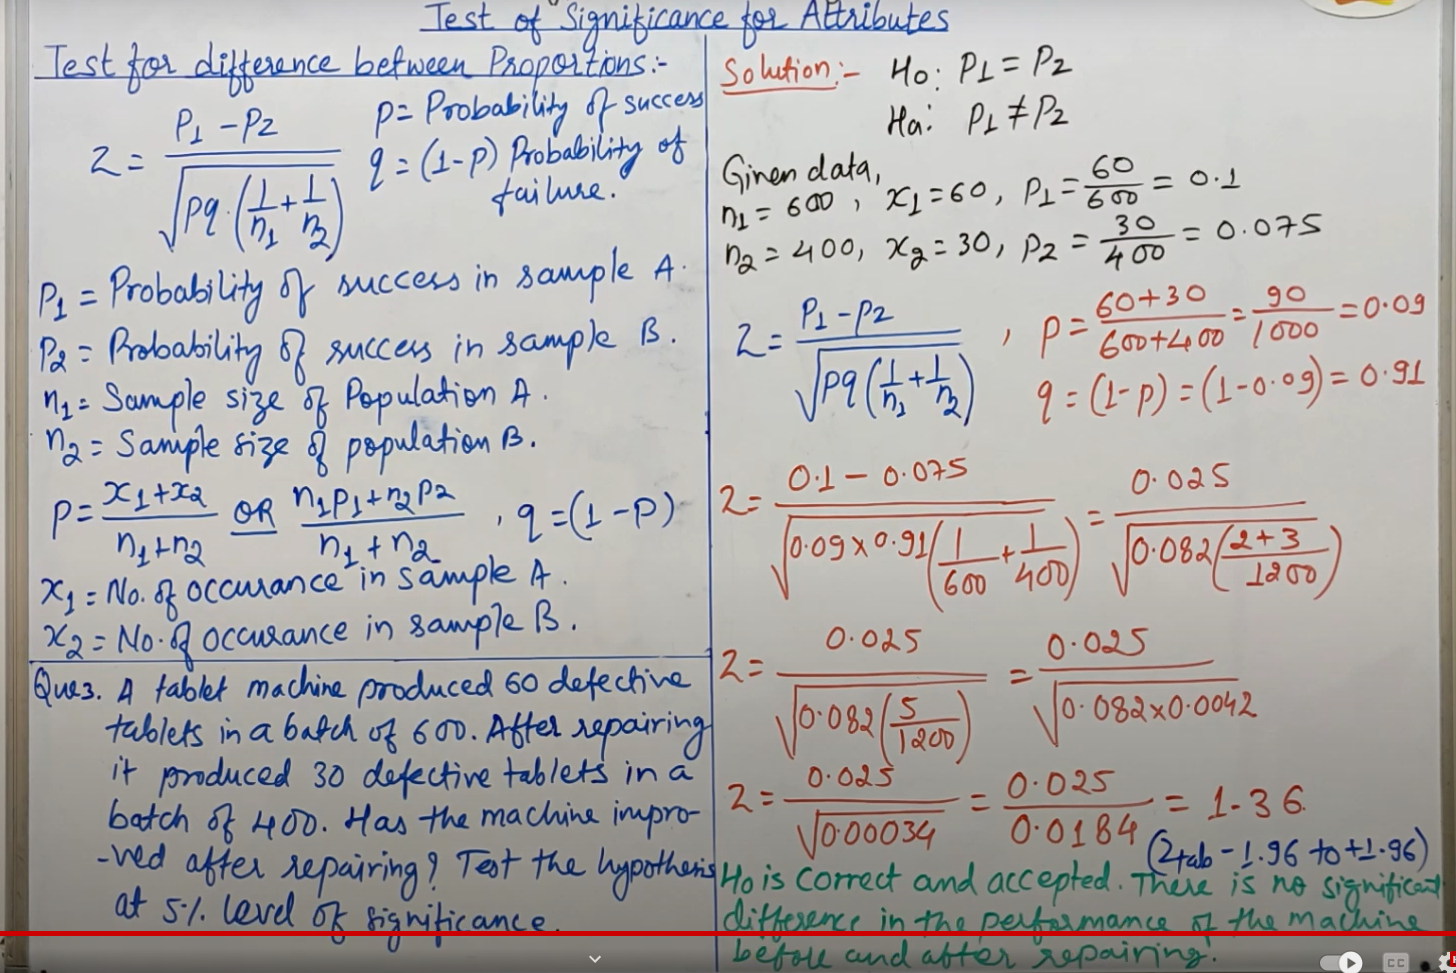 Test of Significance for Attributes
Test for difference between Proportions:-
Z = P1 - P2 / √pq·(1/n1 + 1/n2)
P = Probability of success
q = (1-P) Probability of
failure.
P1 = Probability of success in sample A.
P2 = Probability of success in sample B.
n1 = Sample size of Population A.
n2 = Sample size of population B.
P = x1+x2 / n1+n2 OR n1P1+n2P2 / n1+n2 , q = (1-P)
x1 = No. of occurance in sample A.
x2 = No. of occurance in sample B.
Ques. A tablet machine produced 60 defective
tablets in a batch of 600. After repairing
it produced 30 defective tablets in a
batch of 400. Has the machine impro-
-ved after repairing? Test the hypothesis
at 5% level of significance.
Solution:- Ho: P1 = P2
Ha: P1 ≠ P2
Given data,
n1 = 600, x1 = 60, P1 = 60/600 = 0.1
n2 = 400, x2 = 30, P2 = 30/400 = 0.075
Z = P1 - P2 / √pq(1/n1 + 1/n2) , P = 60+30 / 600+400 = 90/1000 = 0.09
q = (1-P) = (1-0.09) = 0.91
Z = 0.1 - 0.075 / √0.09×0.91(1/600 + 1/400) = 0.025 / √0.082(2+3/1200)
Z = 0.025 / √0.082(5/1200) = 0.025 / √0.082×0.0042
Z = 0.025 / √0.00034 = 0.025 / 0.0184 = 1.36
(Ztab -1.96 to +1.96)
Ho is correct and accepted. There is no significant
difference in the performance of the machine
before and after repairing.
CC